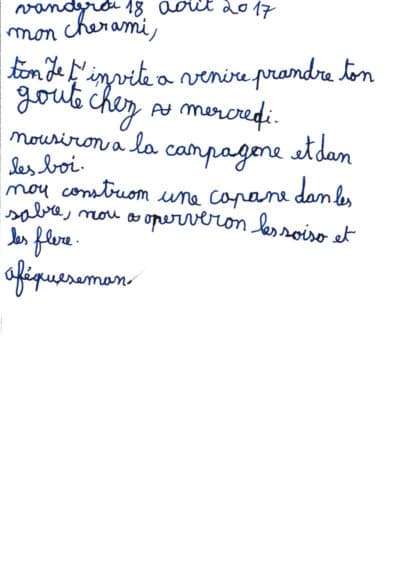 vanderdi 18 août 2017
mon cherami,
ton Je t'invite a venire prandre ton
gouté chez mercredi.
nousiron a la campagene et dan
les boi.
nou construom une capane dan les
sabre, nou operveron les soiso et
les flere.
aféqueseman.